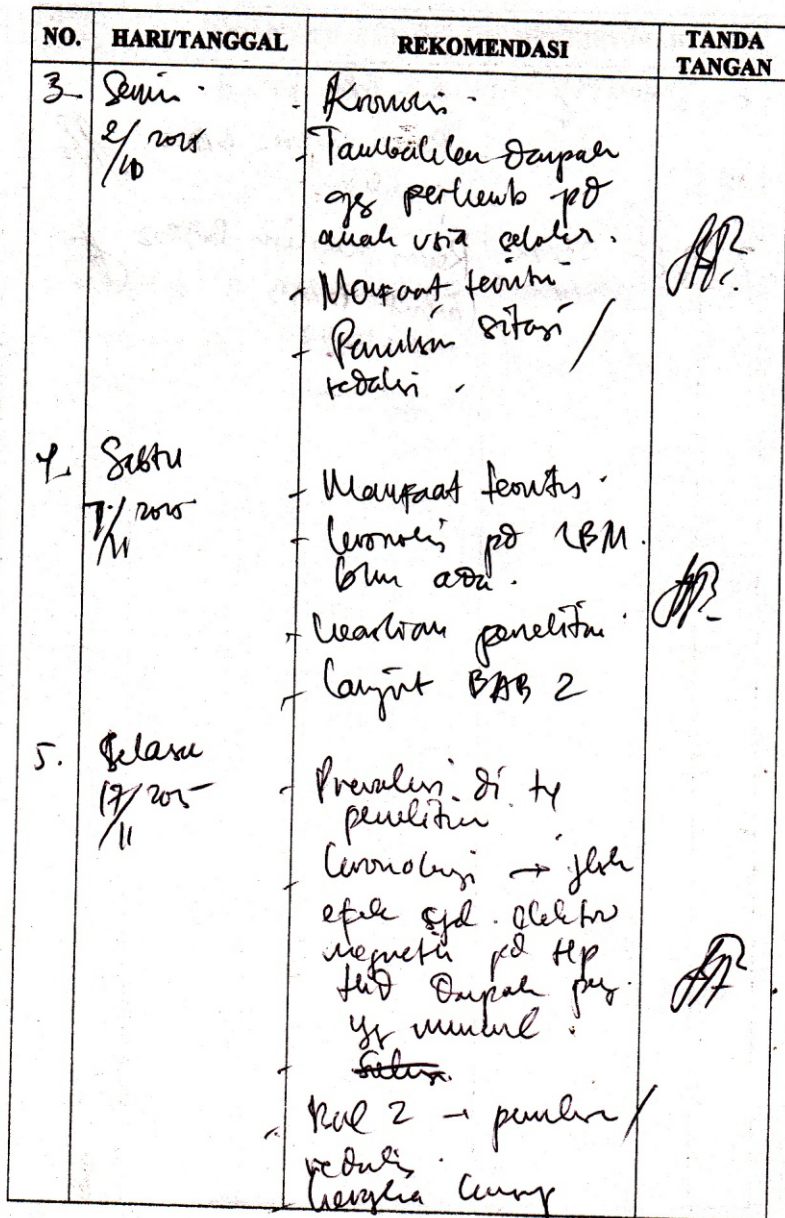 NO. HARI/TANGGAL REKOMENDASI TANDA TANGAN
3. Senin. - Kronolis.
2/10 2015 - Tambahkan dampak
gg perkemb pd
anak usia sekolah.
- Manfaat teoritis
- Penulisan sitasi /
redaksi.
4. Sabtu - Manfaat teoritis.
7/11 2015 - kronolis pd LBM
blm ada.
- keaslian penelitian.
- Lanjut BAB 2
5. Selasa - Prevalensi di tp
17/11 2015 penelitian
- kronologi → jlsk
efek elektro
magnetik pd Hp
thd dampak
yg muncul.
- Bab 2 → penulisan /
redaksi.
- kerangka